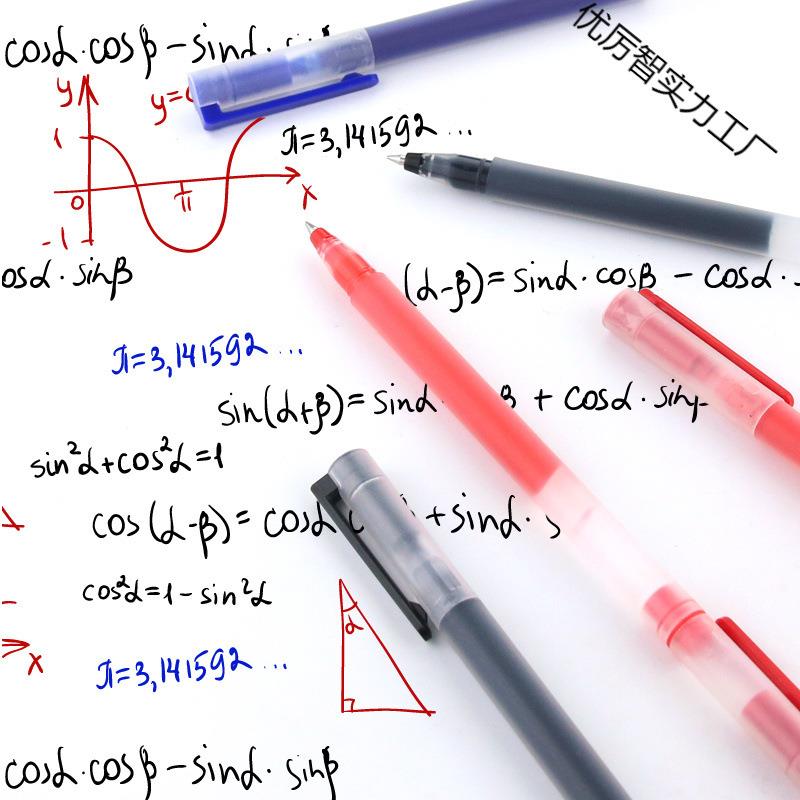 cosα·cosβ-sinα·
优厉智实力工厂
y
y=
1
π=3,141592...
0
π
x
-1
osα·sinβ
(α-β)=sinα·cosβ-cosα·
π=3,141592...
sin(α+β)=sinα β+cosα·sin
sin²α+cos²α=1
cos(α-β)=cosα +sinα·s
cos²α=1-sin²α
α
x
π=3,141592...
cosα·cosβ-sinα·sinβ